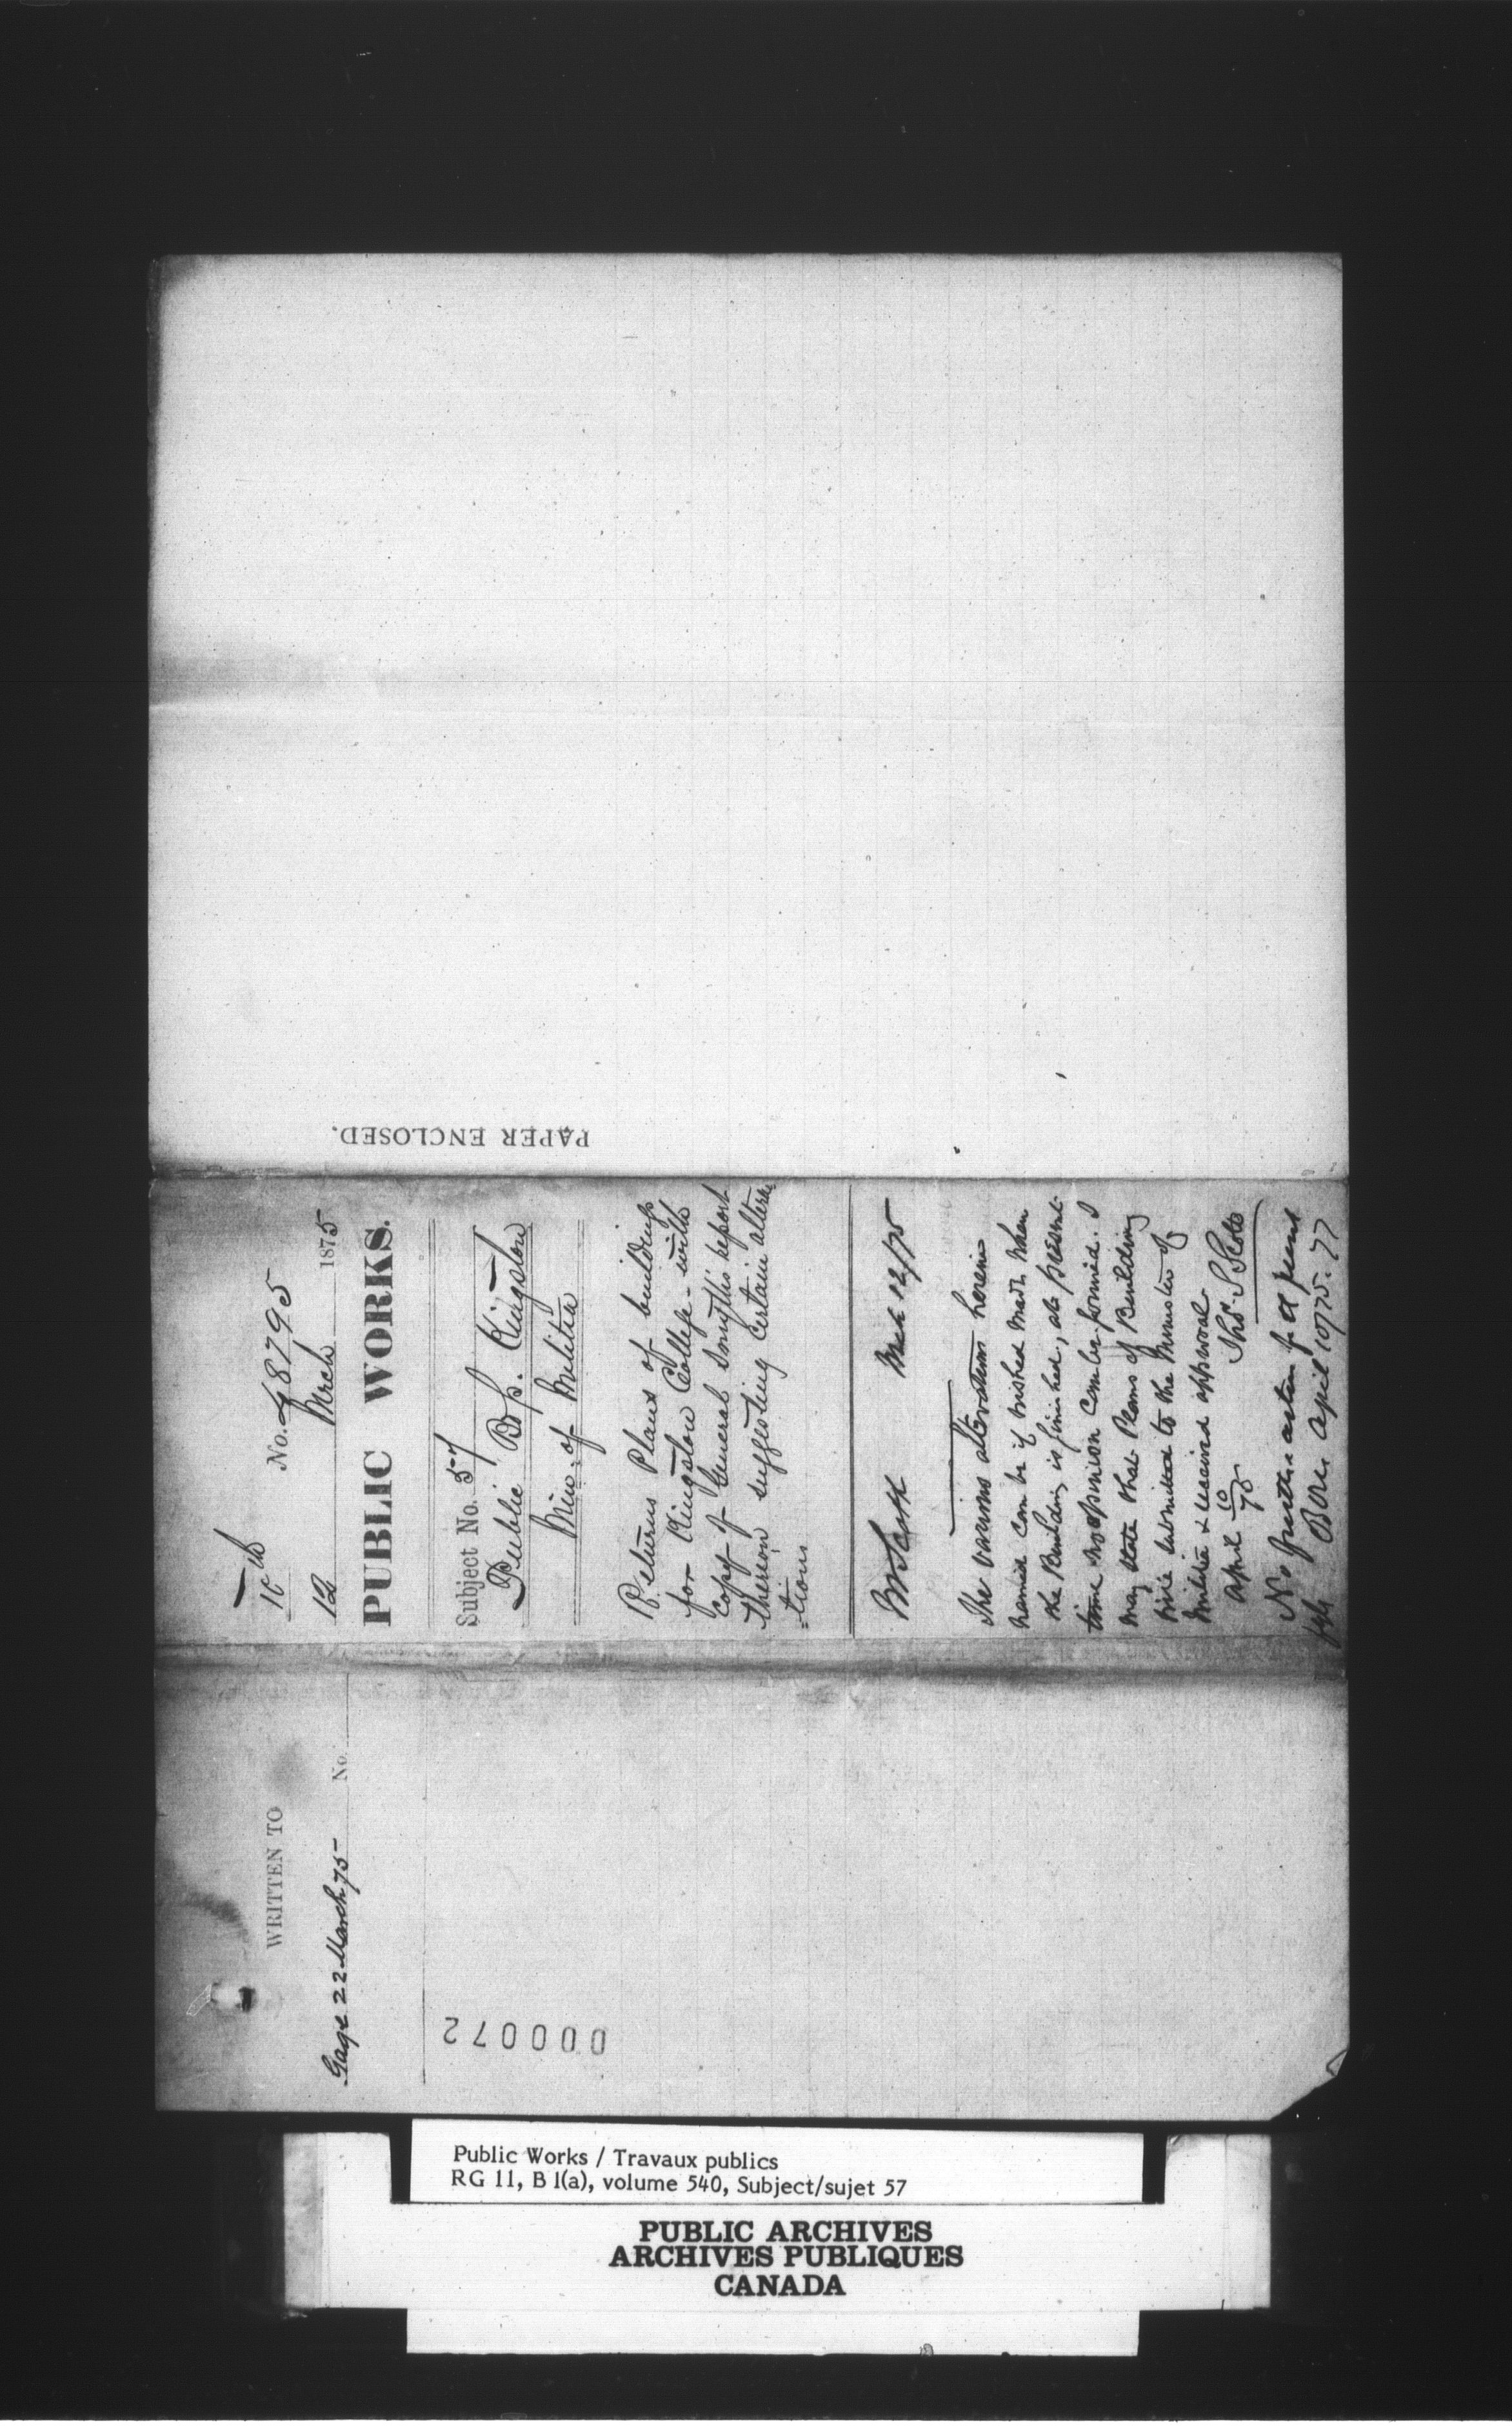 10th No. 48795
12 March 1875
PUBLIC WORKS.
Subject No. 57
Public Bgs. Kingston
Min. of Militia
Returns Plans of buildings
for Kingston College - with
copy of General Smyth's report
thereon suggesting certain altera
=tions
Mr Scott Mch 12/75
The various alterations herein
named can be if wished made when
the Building is finished, at present
time no opinion can be formed. I
may state that Plans of Building
were submitted to the Minister of
Militia & received approval
April 10/75 Thos. S Scott
No further action for at present
April 10/75.
PAPER ENCLOSED.
WRITTEN TO
Gage 22 March 75 No.
000072
Public Works / Travaux publics
RG 11, B 1(a), volume 540, Subject/sujet 57
PUBLIC ARCHIVES
ARCHIVES PUBLIQUES
CANADA